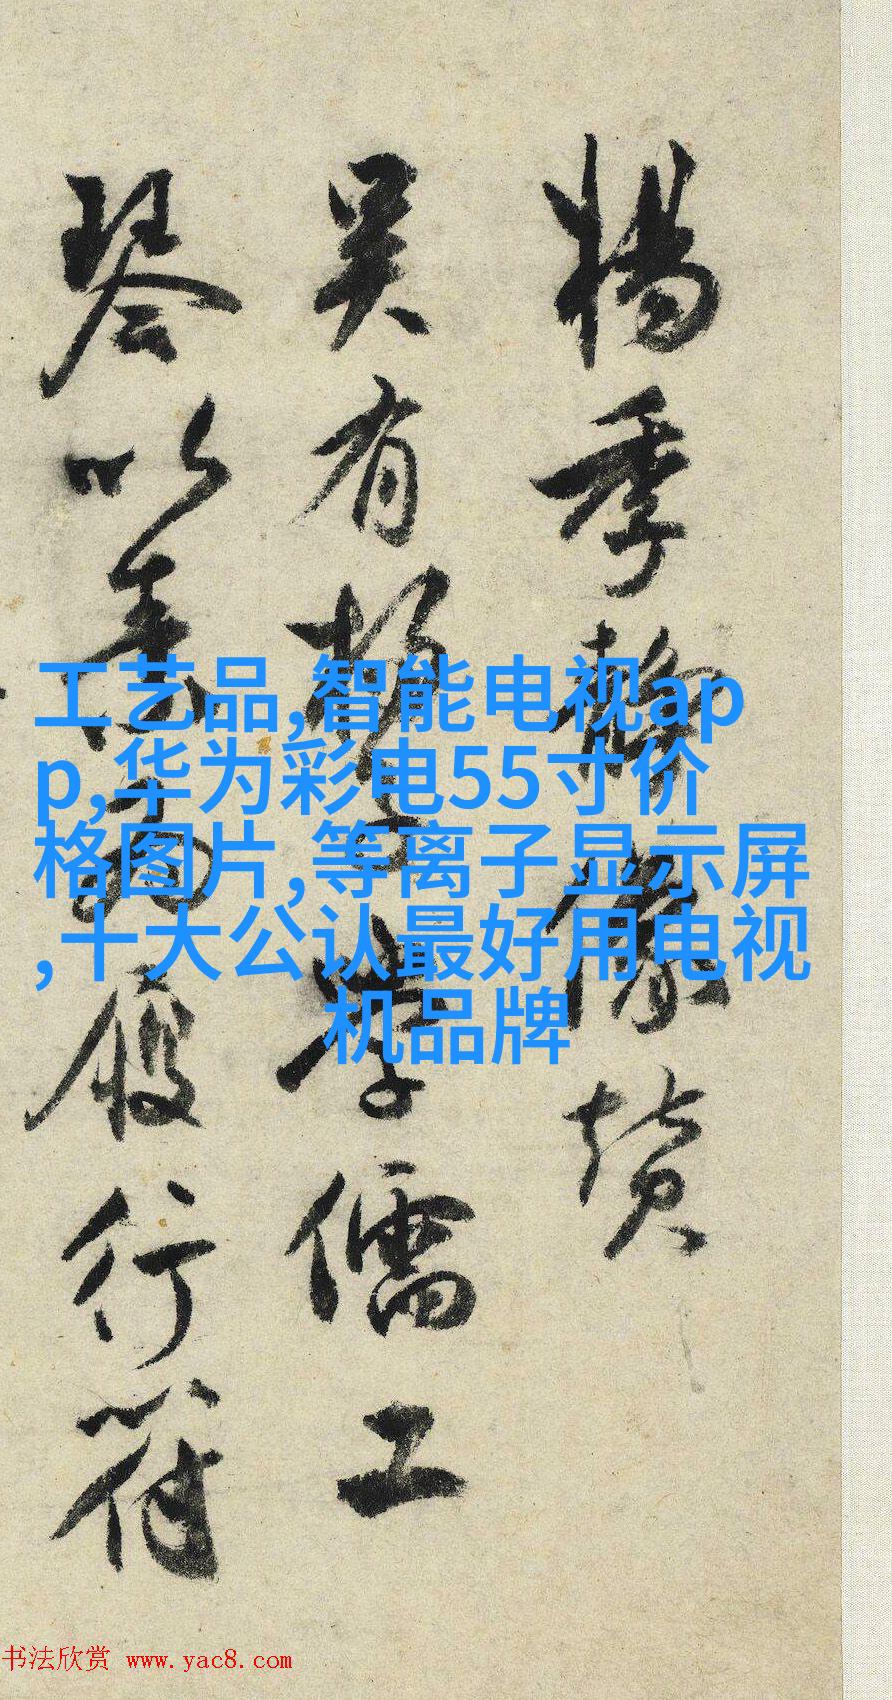 楊季靜像贊
吴有子學儒工
琴以而履行符
工艺品,智能电视ap
p,华为彩电55寸价
格图片,等离子显示屏
,十大公认最好用电视
机品牌
书法欣赏 www.yac8.com